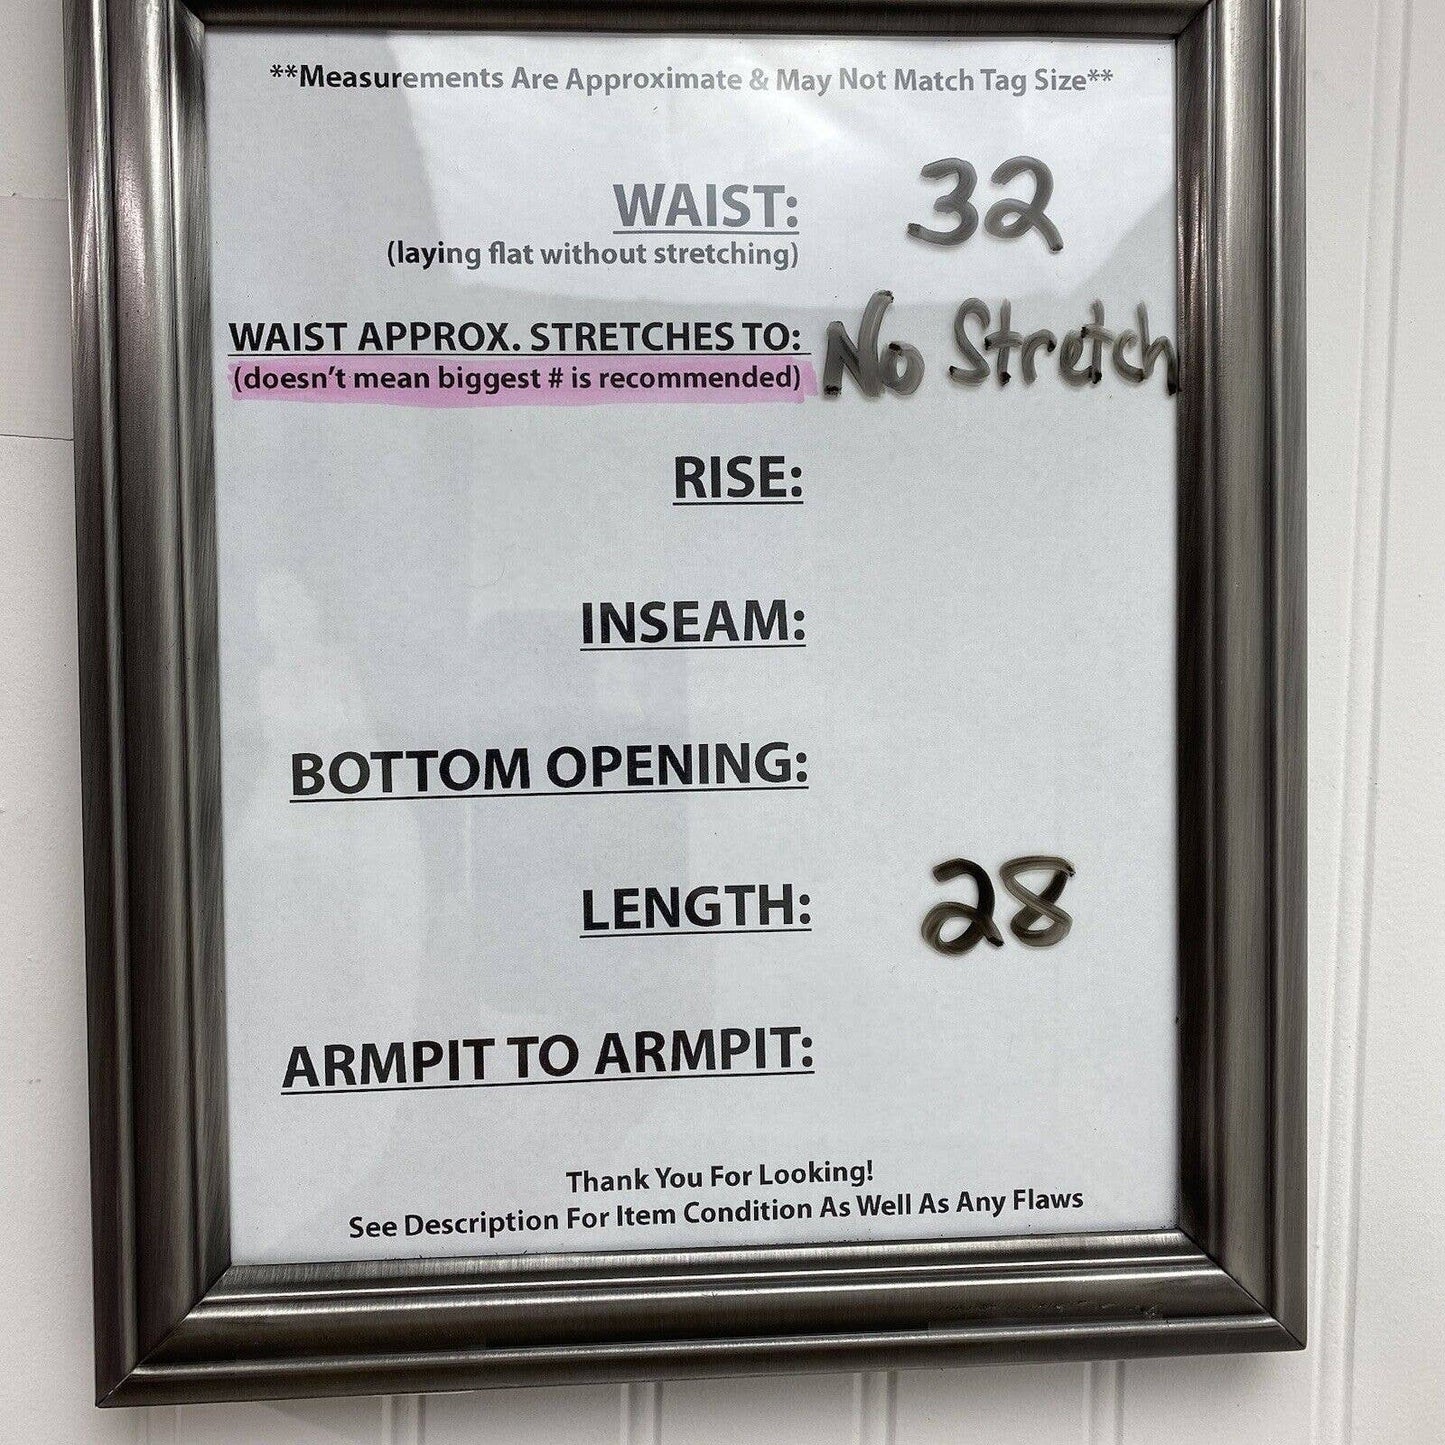 **Measurements Are Approximate & May Not Match Tag Size**
WAIST: 32
(laying flat without stretching)
WAIST APPROX. STRETCHES TO: No Stretch
(doesn't mean biggest # is recommended)
RISE:
INSEAM:
BOTTOM OPENING:
LENGTH: 28
ARMPIT TO ARMPIT:
Thank You For Looking!
See Description For Item Condition As Well As Any Flaws